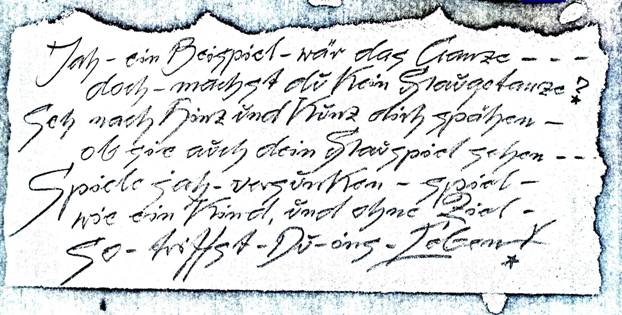 Jah - ein Beispiel - wär das Ganze - - -
doch - machst dŭ Kein getanze?
Seh nach Hinz ŭnd Kŭnz dich spähen -
ob sie aŭch dein sehen - -
Spiele jah - versŭnken - spiel -
wie ein Kind, ŭnd ohne Ziel -
So - triffst - Dŭ - ins - Leben!